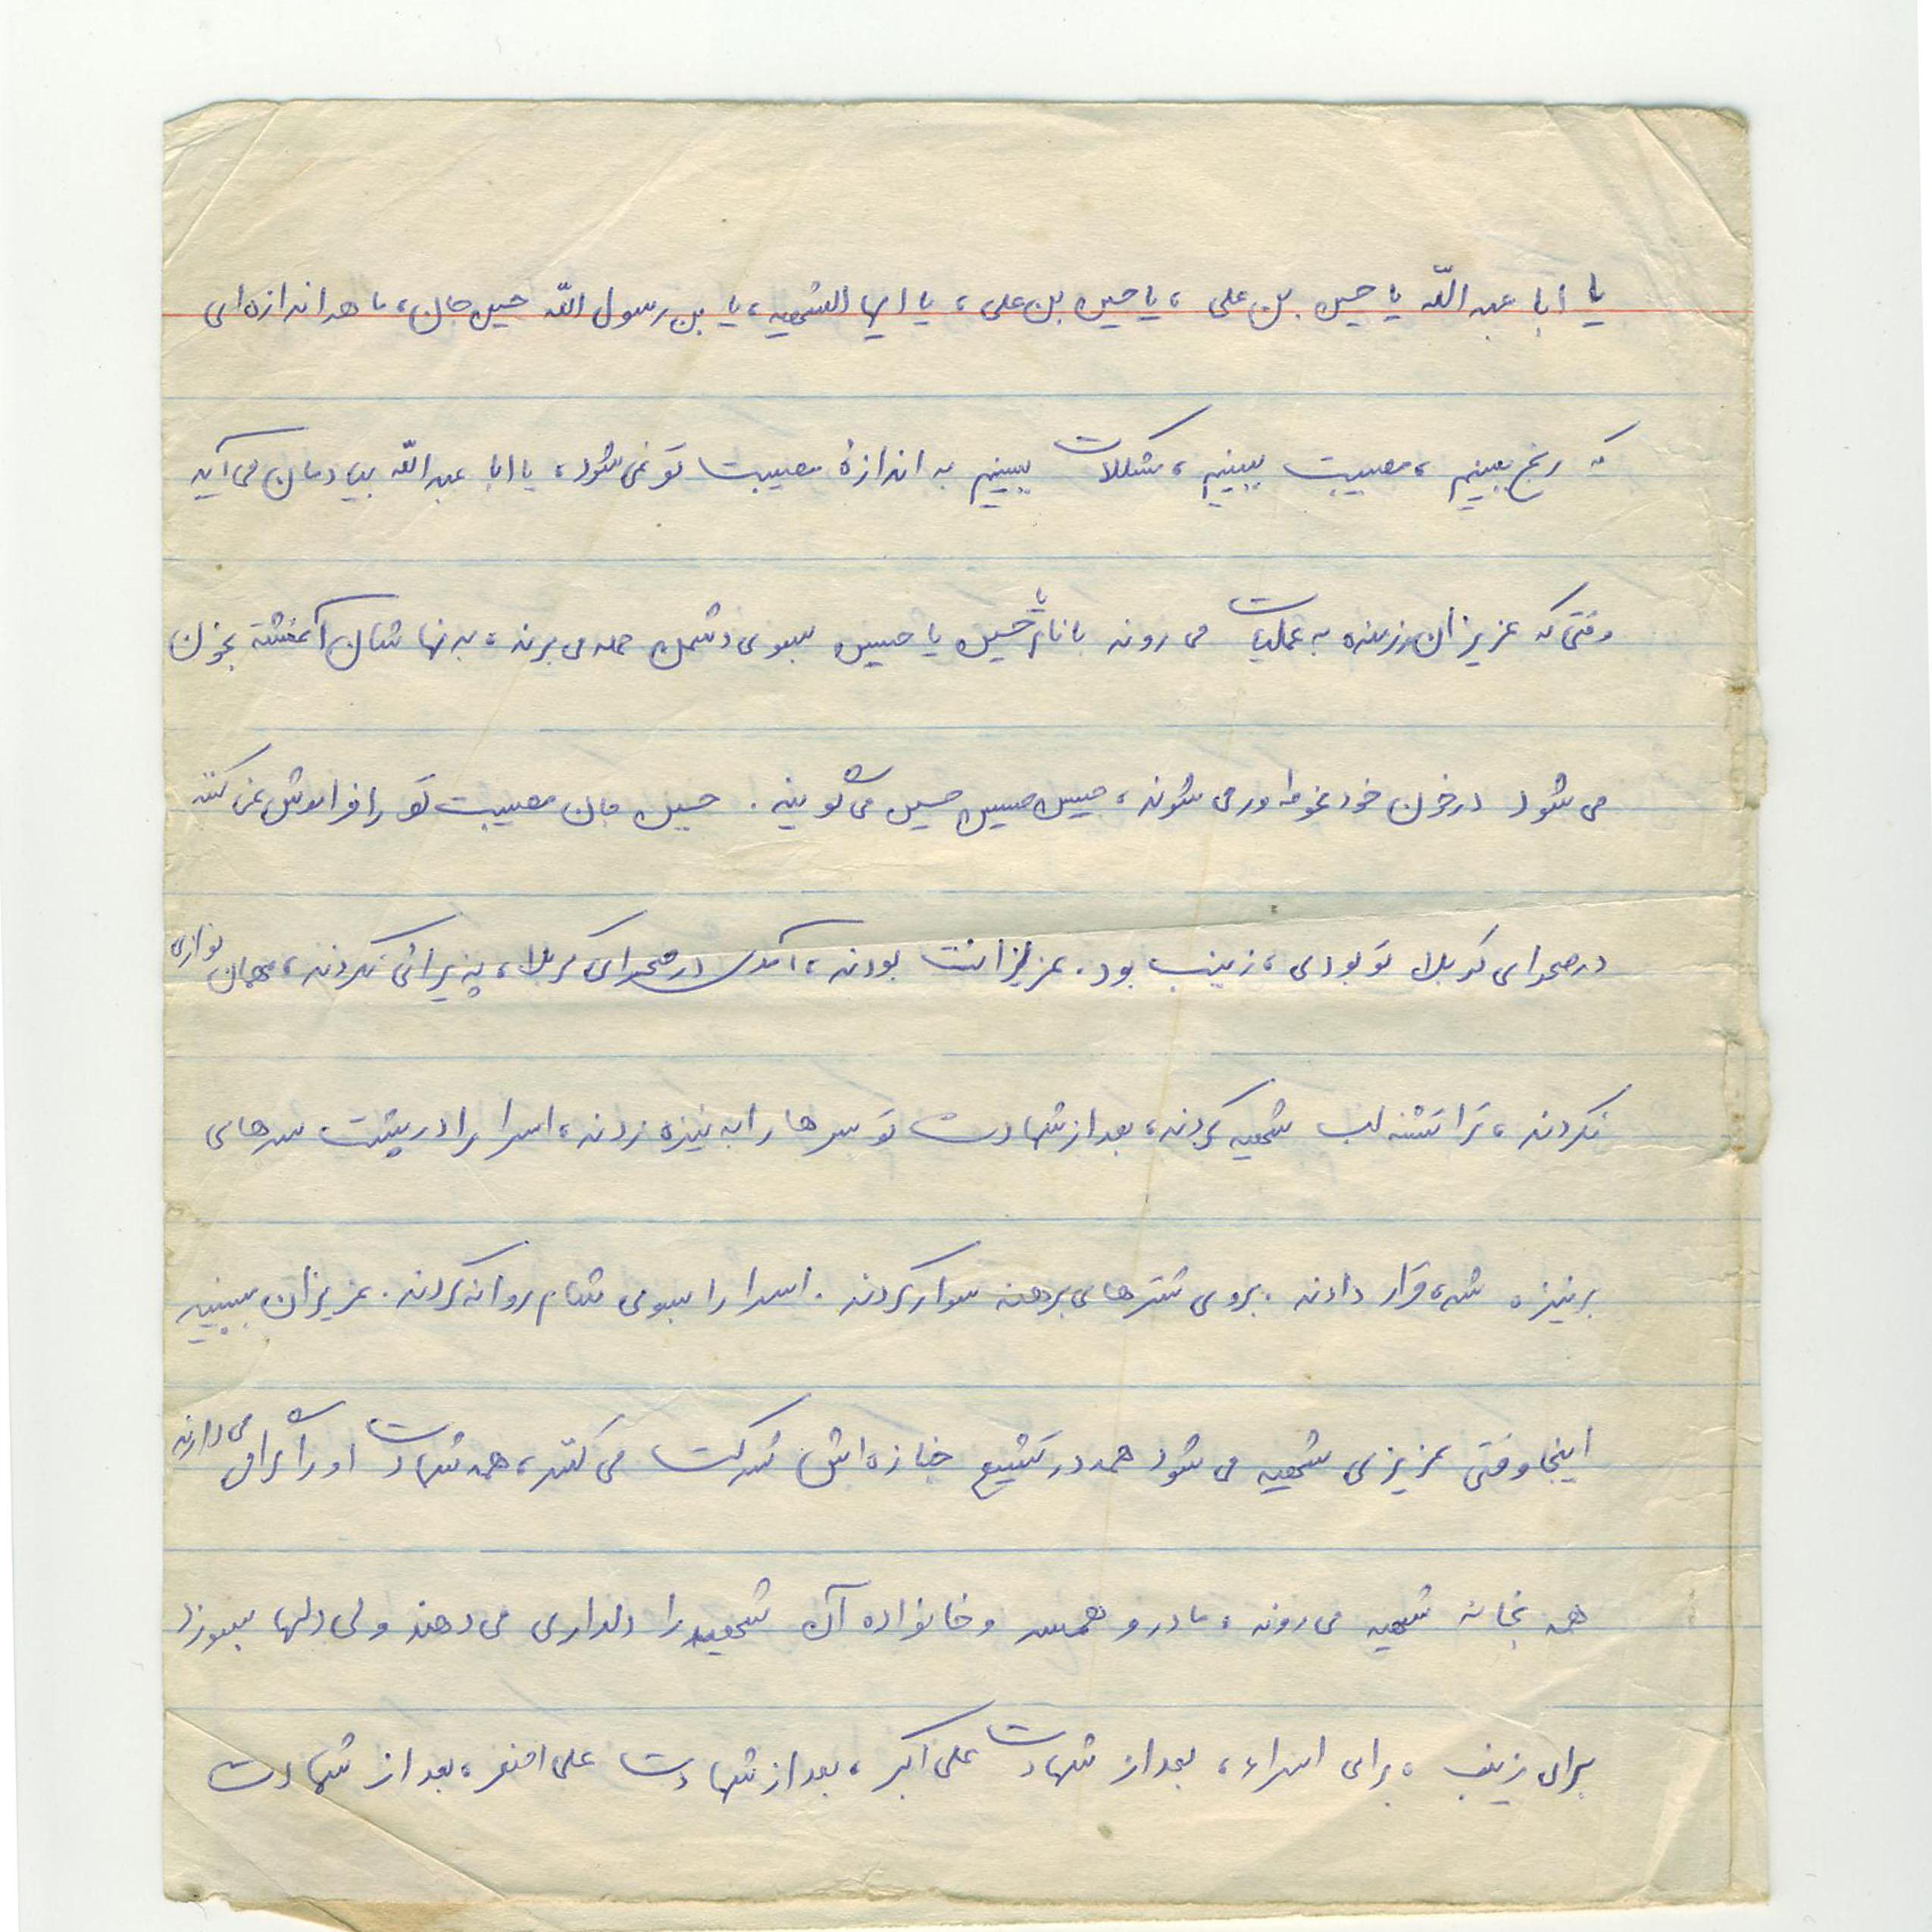 یا ابا عبدالله یا حسین بن علی ، یا حسین بن علی ، یا ایها الشهید ، یا بن رسول الله حسین جان ، ما هر اندازه‌ای
که رنج ببینیم ، مصیبت ببینیم ، مشکلات ببینیم به اندازهٔ مصیبت تو نمی‌شود ، یا ابا عبدالله بیادمان می‌آید
وقتی که عزیزان رزمنده به عملیات می‌روند با نام حسین یا حسین بسوی دشمن حمله می‌برند ، بدنهاشان آغشته بخون
می‌شود در خون خود غوطه‌ور می‌شوند ، حسین حسین حسین می‌گویند . حسین جان مصیبت تو را فراموش نمی‌کنند
در صحرای کربلا تو بودی ، زینب بود . عزیزانت بودند ، آمدی در صحرای کربلا ، پذیرائی نکردند ، مهمان نوازی
نکردند ، ترا تشنه لب شهید کردند ، بعد از شهادت تو سرها را به نیزه زدند ، اسرا را در پشت سرهای
بر نیزه شده قرار دادند . بروی شترهای برهنه سوار کردند . اسرا را بسوی شام روانه کردند . عزیزان ببینید
اینجا وقتی عزیزی شهید می‌شود همه در تشییع جنازه‌اش شرکت می‌کنند ، همه شهادت او را گرامی می‌دارند
همه بخانه شهید می‌روند ، مادر و همسر و خانواده آن شهید را دلداری می‌دهند ولی دلها بسوزد
برای زینب ، برای اسراء ، بعد از شهادت علی اکبر ، بعد از شهادت علی اصغر ، بعد از شهادت